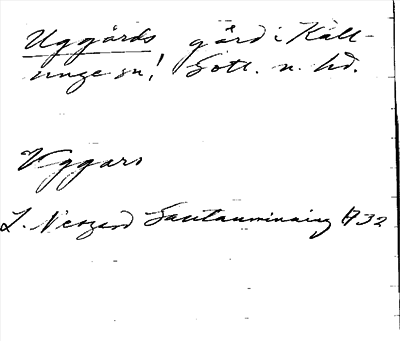 Uggårds gård i Käll-
unge sn, Gotl. n. hd.
Uggars
L. Nerzend Jautauminaing 1732